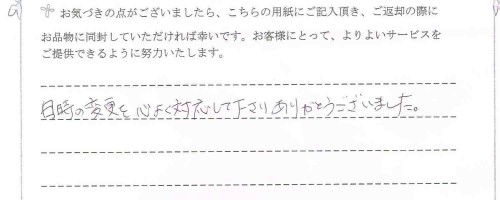 お気づきの点がございましたら、こちらの用紙にご記入頂き、ご返却の際に
お品物に同封していただければ幸いです。お客様にとって、よりよいサービスを
ご提供できるように努力いたします。
日時の変更を心よく対応して下さりありがとうございました。